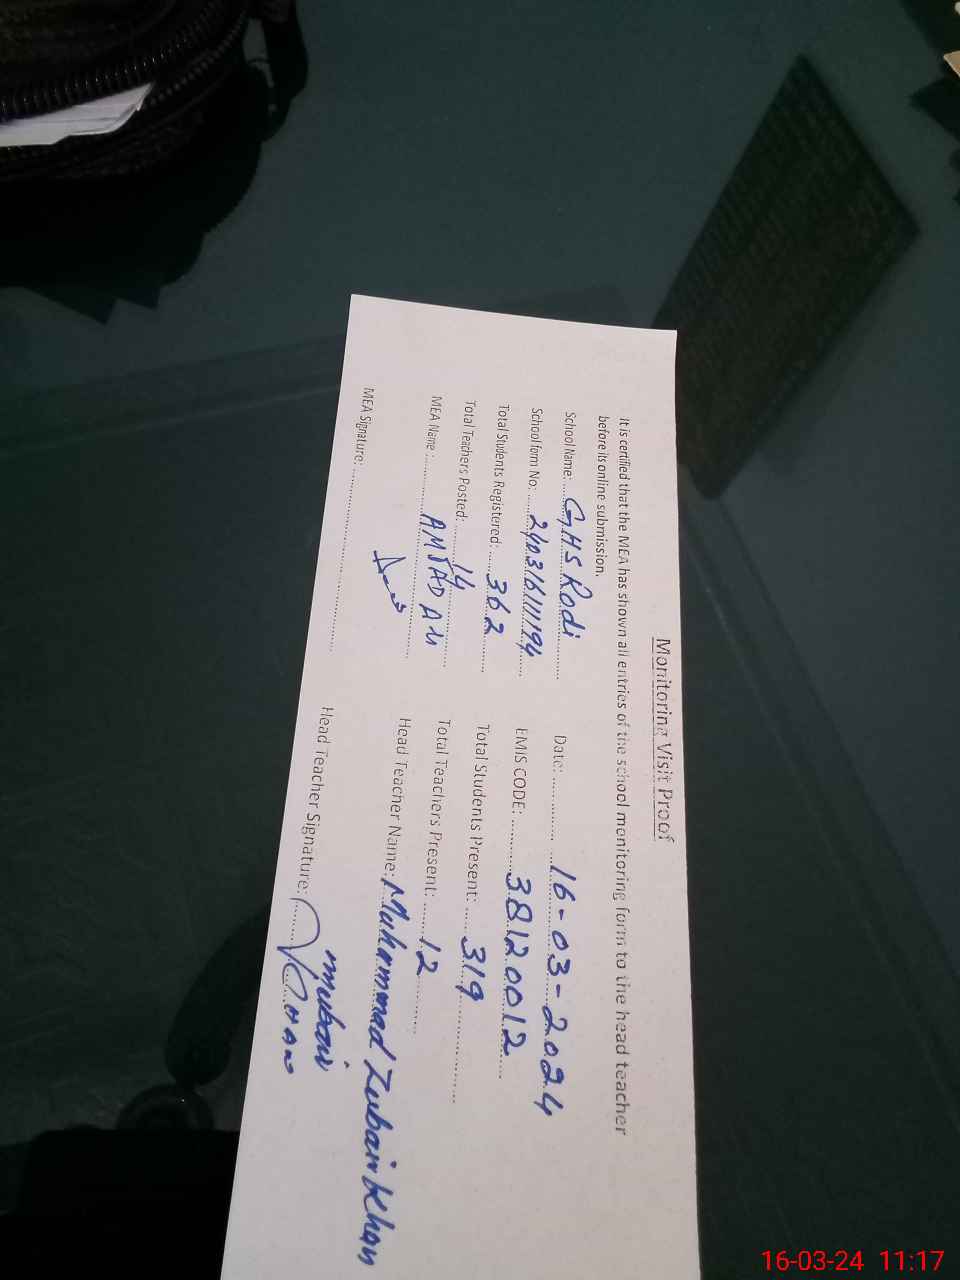 Monitoring Visit Proof
It is certified that the MEA has shown all entries of the school monitoring form to the head teacher
before its online submission.
School Name: GHS Rodi Date: 16-03-2024
School form No: 240316111194 EMIS CODE: 38120012
Total Students Registered: 362 Total Students Present: 319
Total Teachers Posted: 14 Total Teachers Present: 12
MEA Name: AMJAD Ali Head Teacher Name: Muhammad Zubair Khan
MEA Signature: Head Teacher Signature:
16-03-24 11:17